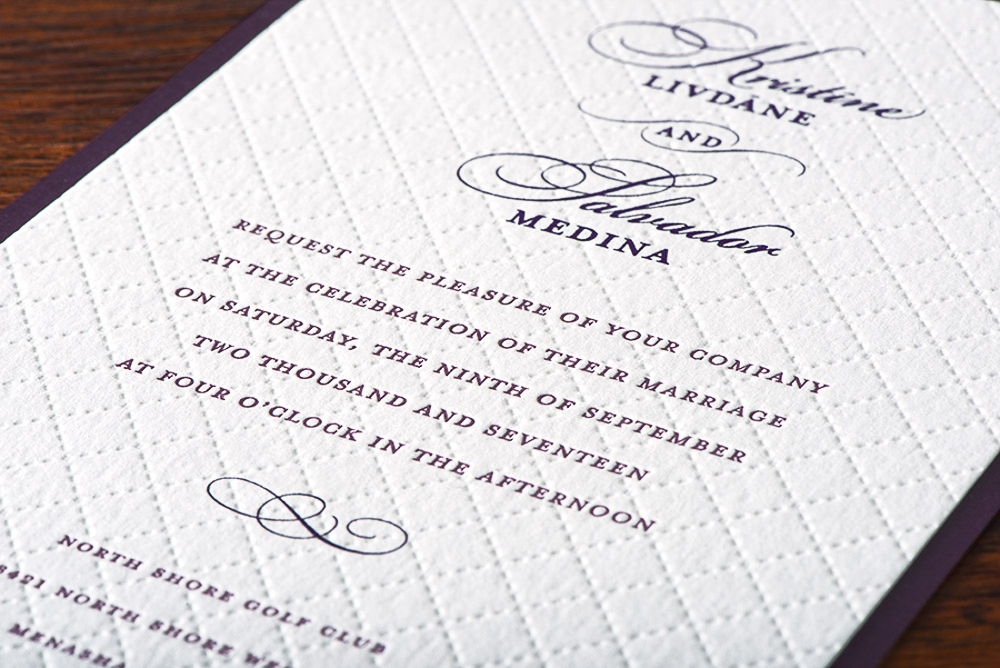 Kristine
LIVDĀNE
AND
Salvador
MEDINA
REQUEST THE PLEASURE OF YOUR COMPANY
AT THE CELEBRATION OF THEIR MARRIAGE
ON SATURDAY, THE NINTH OF SEPTEMBER
TWO THOUSAND AND SEVENTEEN
AT FOUR O'CLOCK IN THE AFTERNOON
&
NORTH SHORE GOLF CLUB
NORTH SHORE
MENASHA